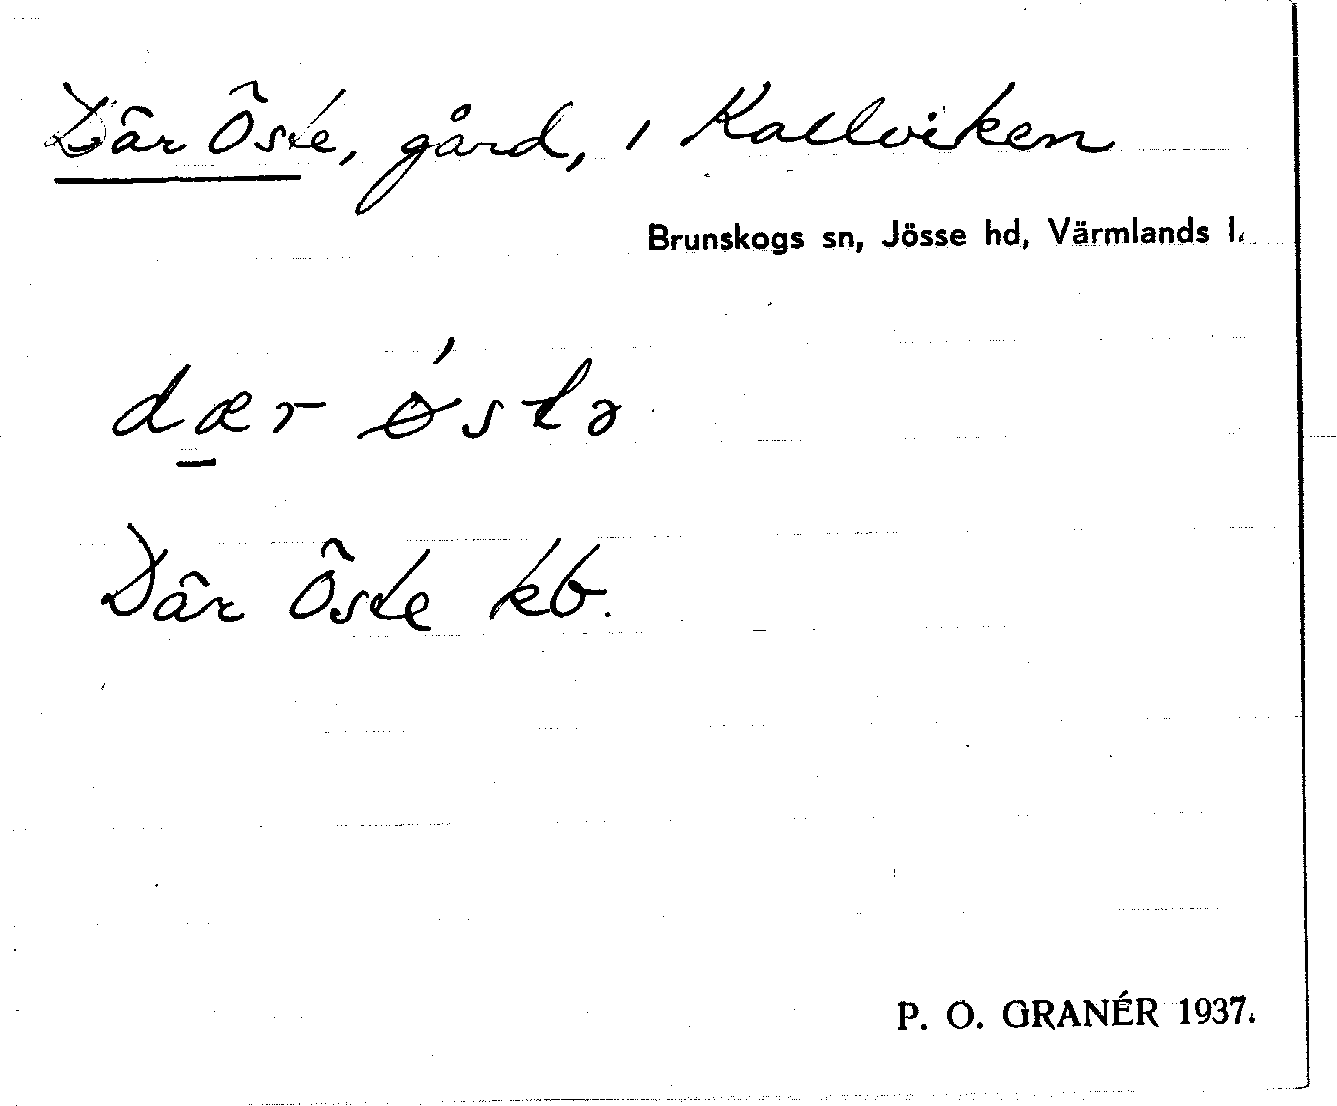 Där Öste, gård, i Kallviken
Brunskogs sn, Jösse hd, Värmlands l.
dær ǿstə
Där Öste kb.
P. O. GRANÉR 1937.